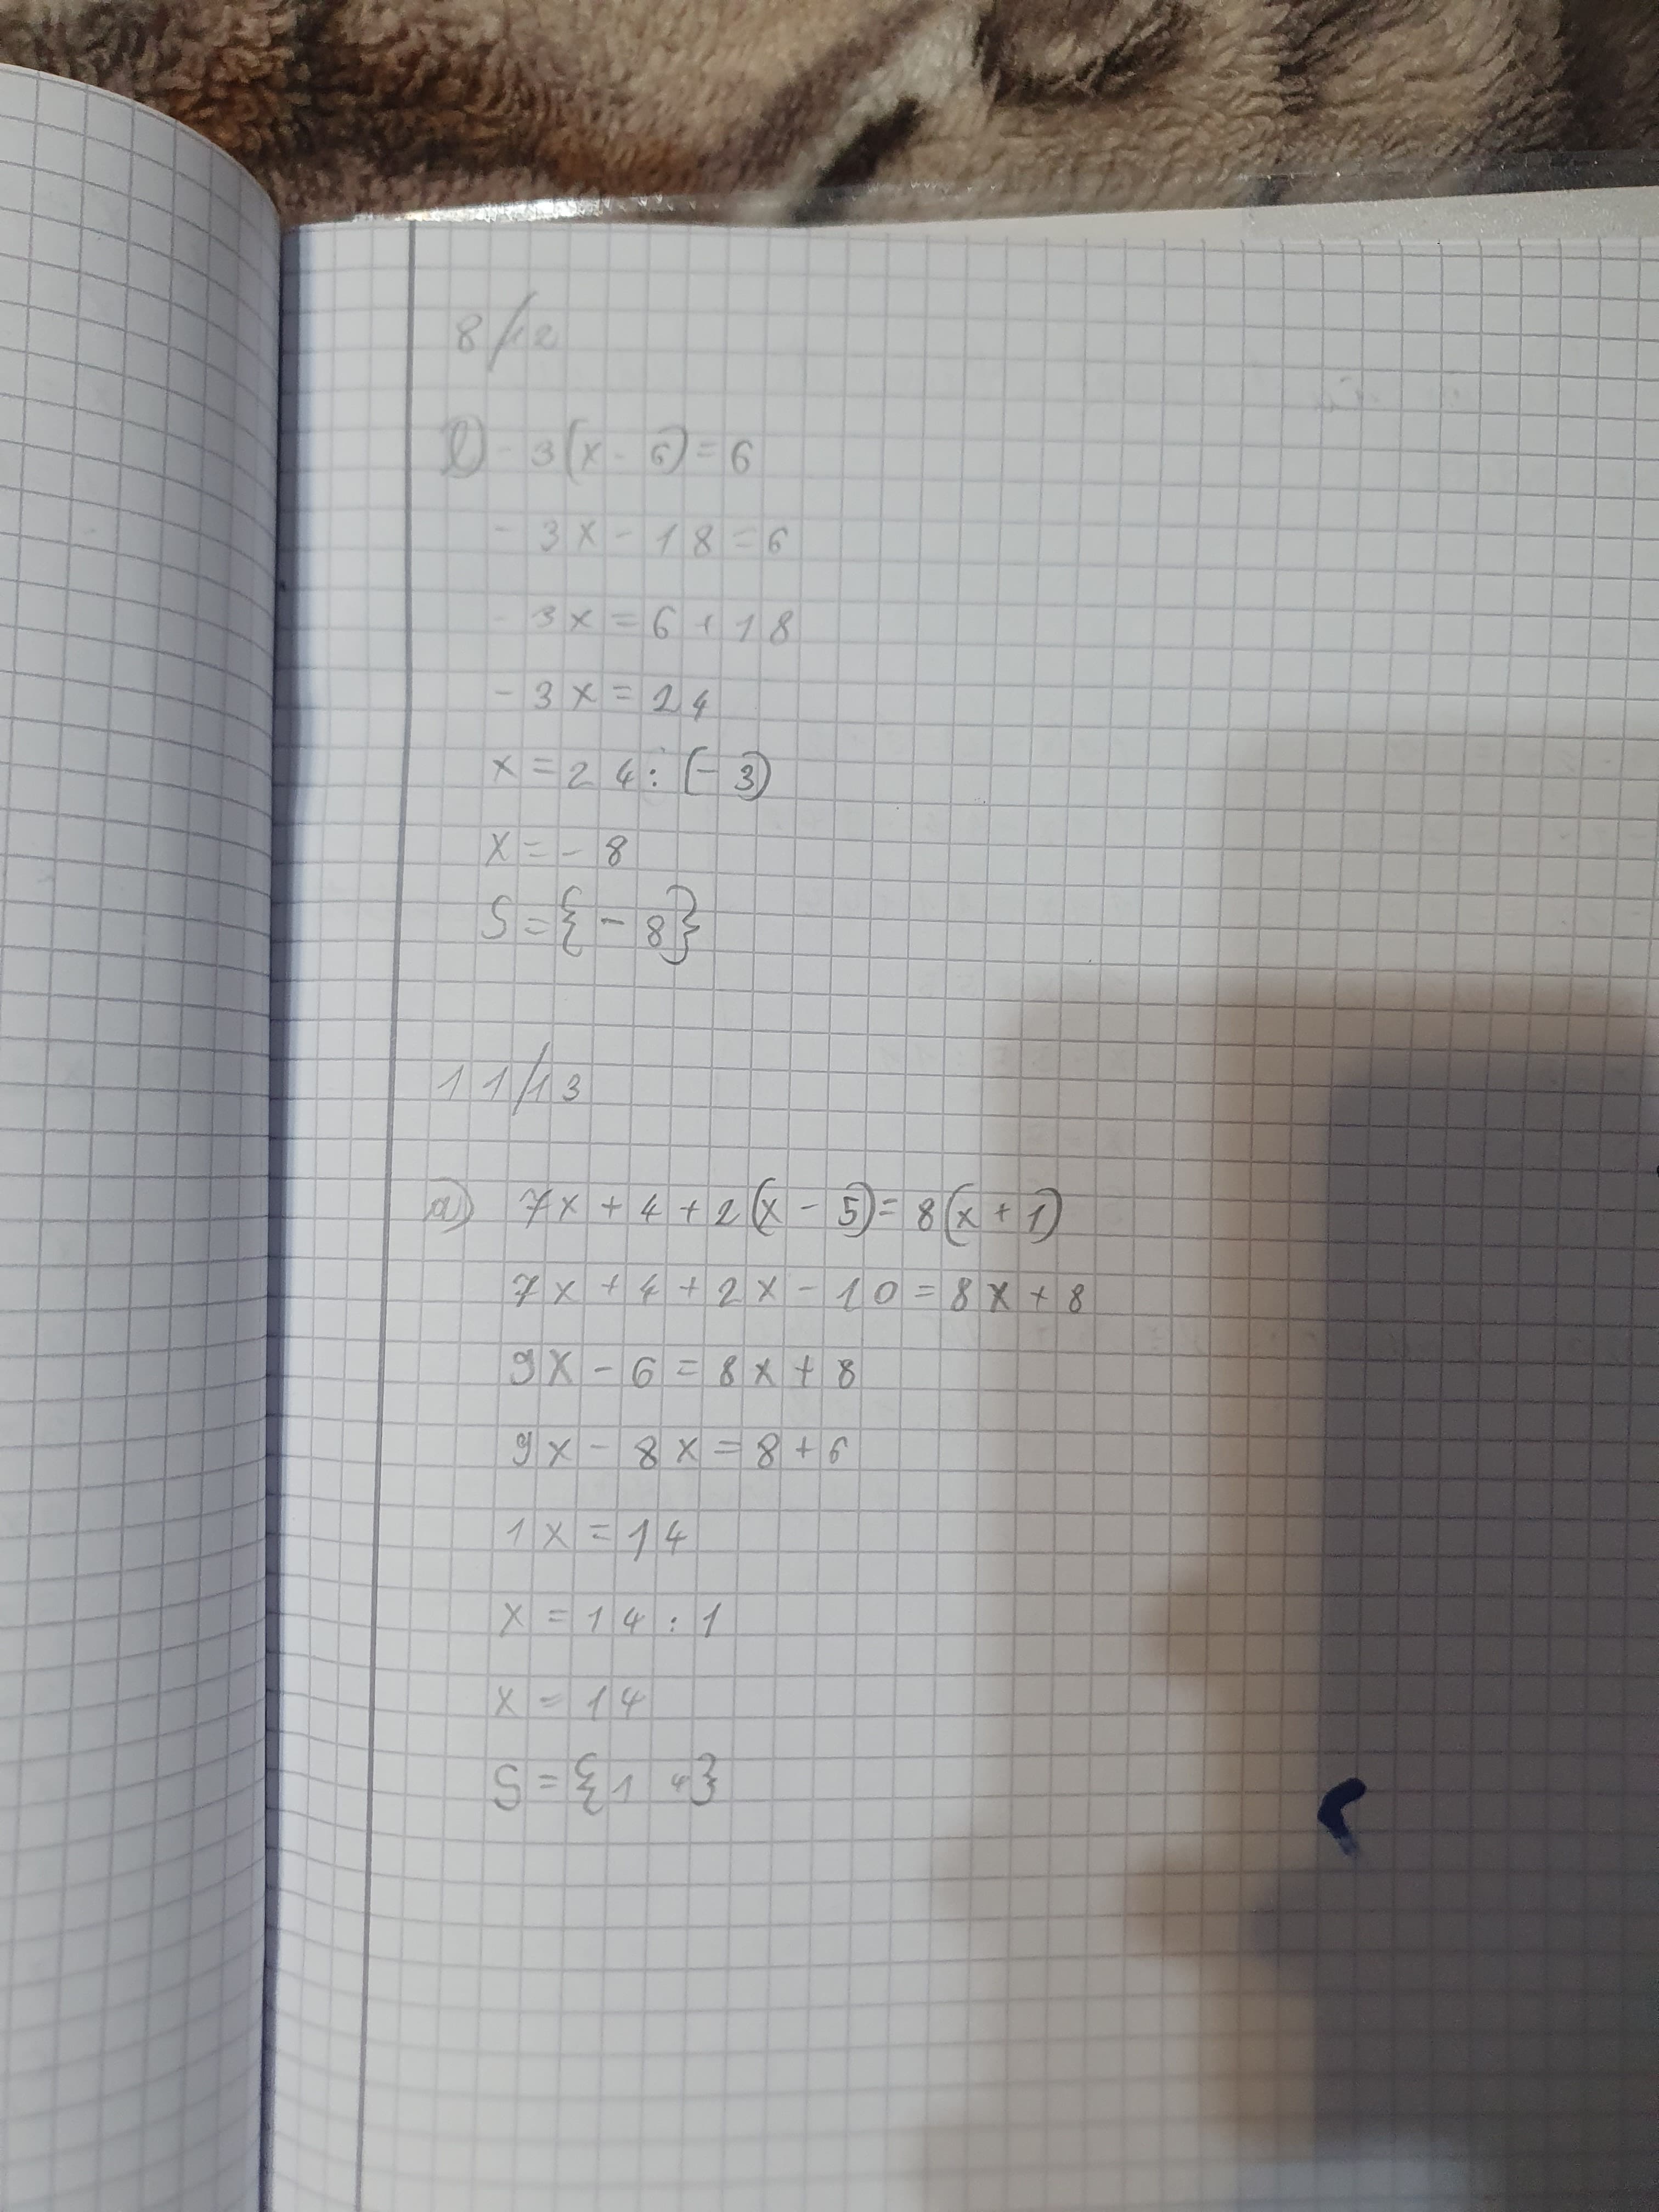 8/12
l) - 3(x - 6) = 6
- 3x - 18 = 6
- 3x = 6 + 18
- 3x = 24
x = 24 : (- 3)
x = - 8
S = {- 8}
11/13
a) 7x + 4 + 2(x - 5) = 8(x + 1)
7x + 4 + 2x - 10 = 8x + 8
9x - 6 = 8x + 8
9x - 8x = 8 + 6
1x = 14
x = 14 : 1
x = 14
S = {14}